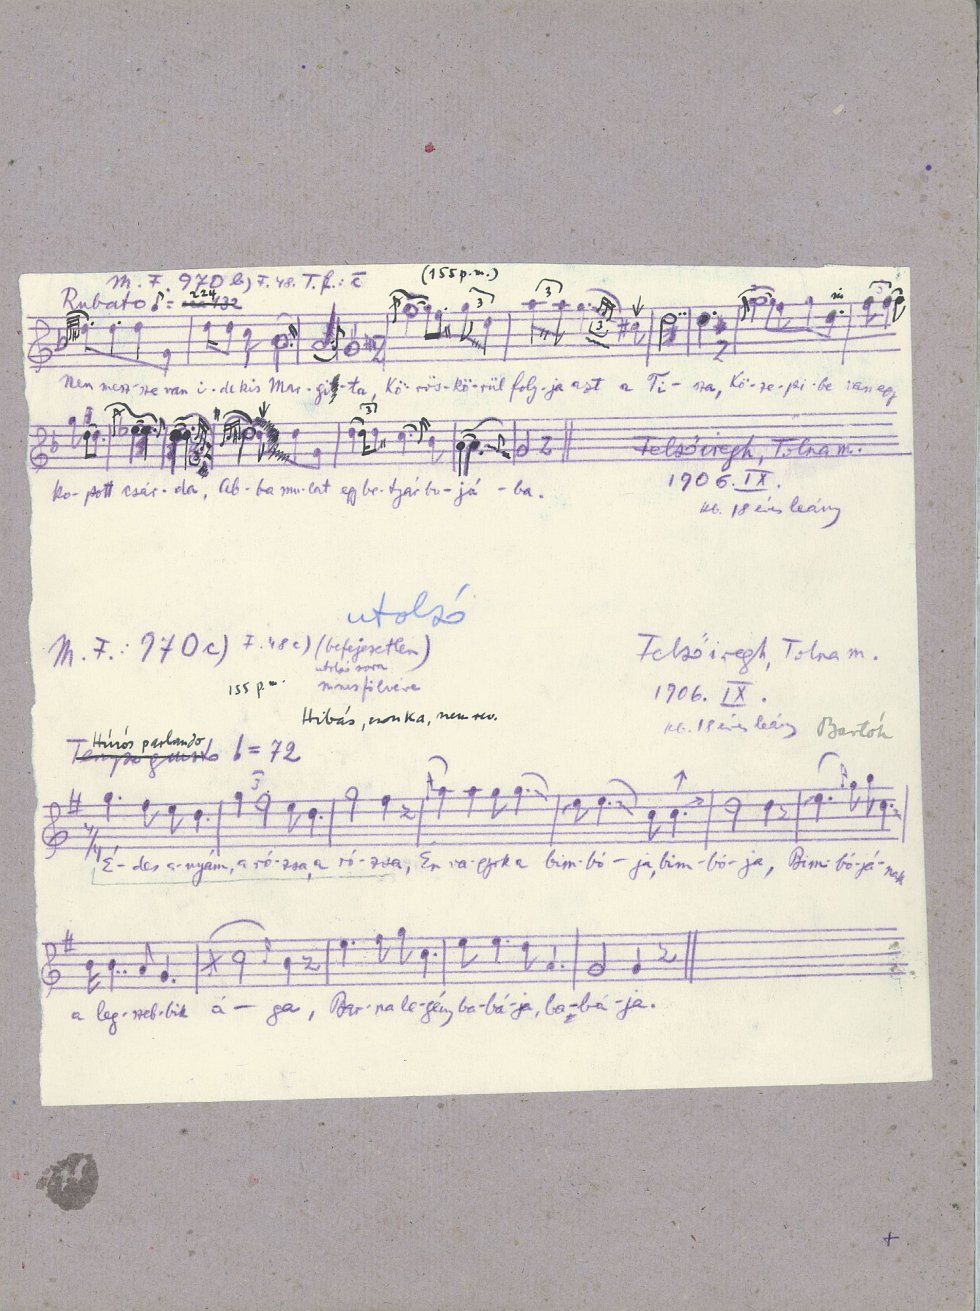 M. F. 970 b) F. 48. T. f.: c̄
(155 p.m.)
Rubato ♪ = 224 132
Nem mesz-sze van i-de kis Mar-git-ta, Kö-rös-kö-rül foly-ja azt a Ti-sza, Kö-ze-pi-be van egy
ko-pott csár-da, Ab-ba mu-lat egy be-tyár bu-já-ba.
Felsőiregh, Tolna m.
1906. IX.
kb. 18 éves leány
utolsó
M. F.: 970 c) F. 48 c) (befejezetlen)
utolsó sora
nincs fölvéve
155 p.m.
Hibás, csonka, nem rev.
Felsőiregh, Tolna m.
1906. IX.
kb. 18 éves leány
Bartók
Tempo giusto = 72
parlando
É-des a-nyám, a ró-zsa, a ró-zsa, Én va-gyok a bim-bó-ja, bim-bó-ja, Bim-bó-já-nak
a leg-szeb-bik á-ga, Bar-na le-gény ba-bá-ja, ba-bá-ja.